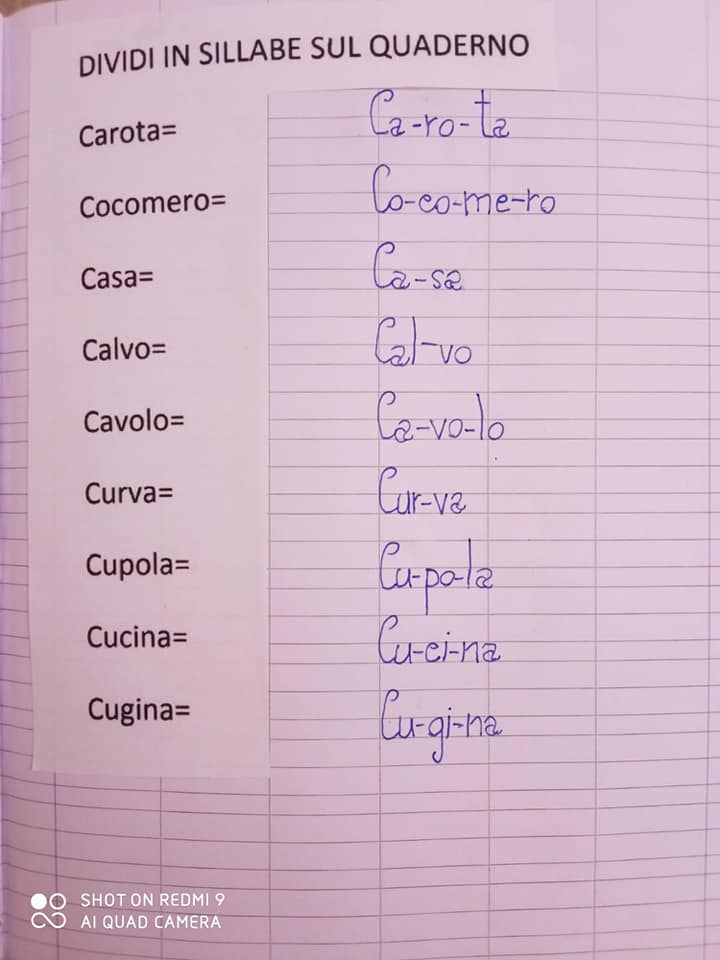 DIVIDI IN SILLABE SUL QUADERNO
Carota= Ca-ro-ta
Cocomero= Co-co-me-ro
Casa= Ca-sa
Calvo= Cal-vo
Cavolo= Ca-vo-lo
Curva= Cur-va
Cupola= Cu-po-la
Cucina= Cu-ci-na
Cugina= Cu-gi-na
SHOT ON REDMI 9
AI QUAD CAMERA